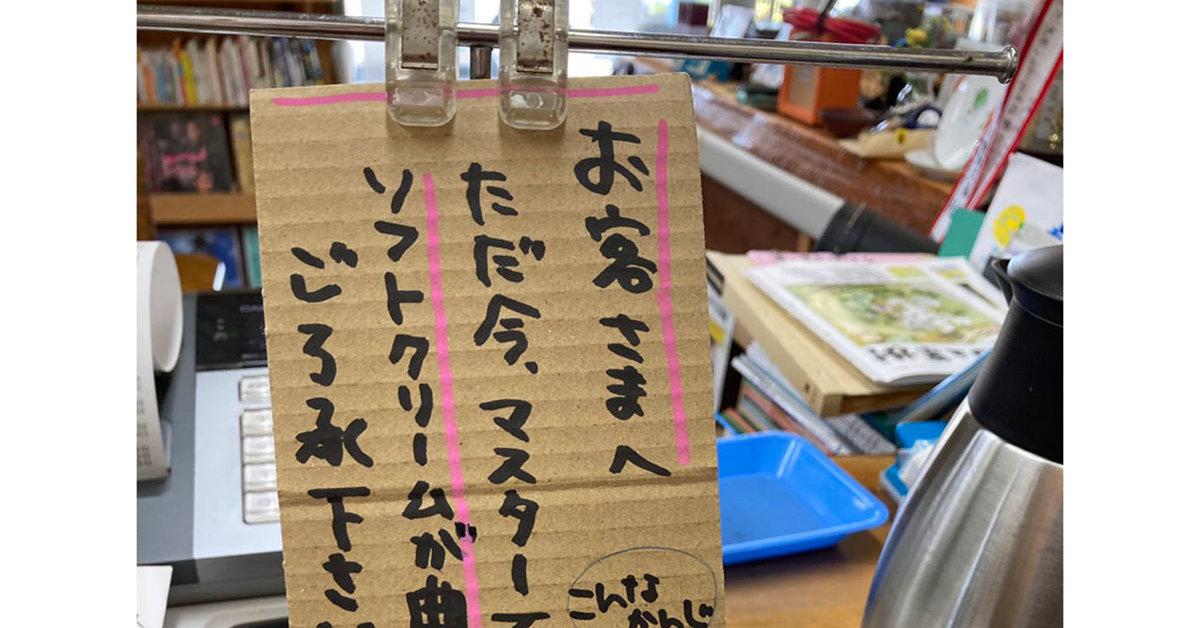 お客さまへ
ただ今、マスター
ソフトクリームが曲
ごろ承下さ
こんな
かんじ